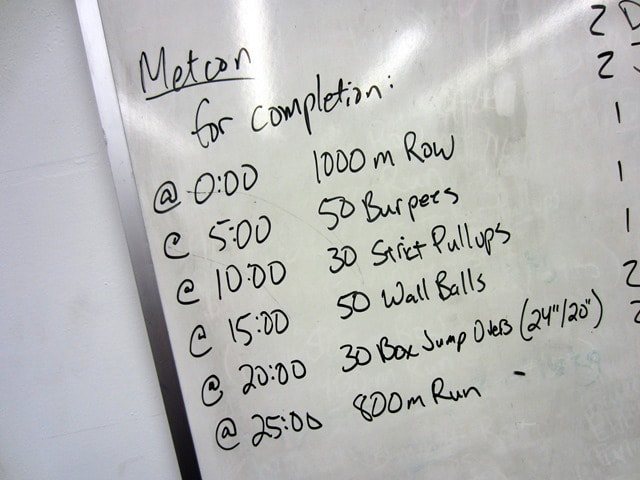 Metcon
for completion:
@ 0:00 1000 m Row
@ 5:00 50 Burpees
@ 10:00 30 Strict Pullups
@ 15:00 50 Wall Balls
@ 20:00 30 Box Jump Overs (24"/20")
@ 25:00 800m Run -
2
2
1
1
1
2
2